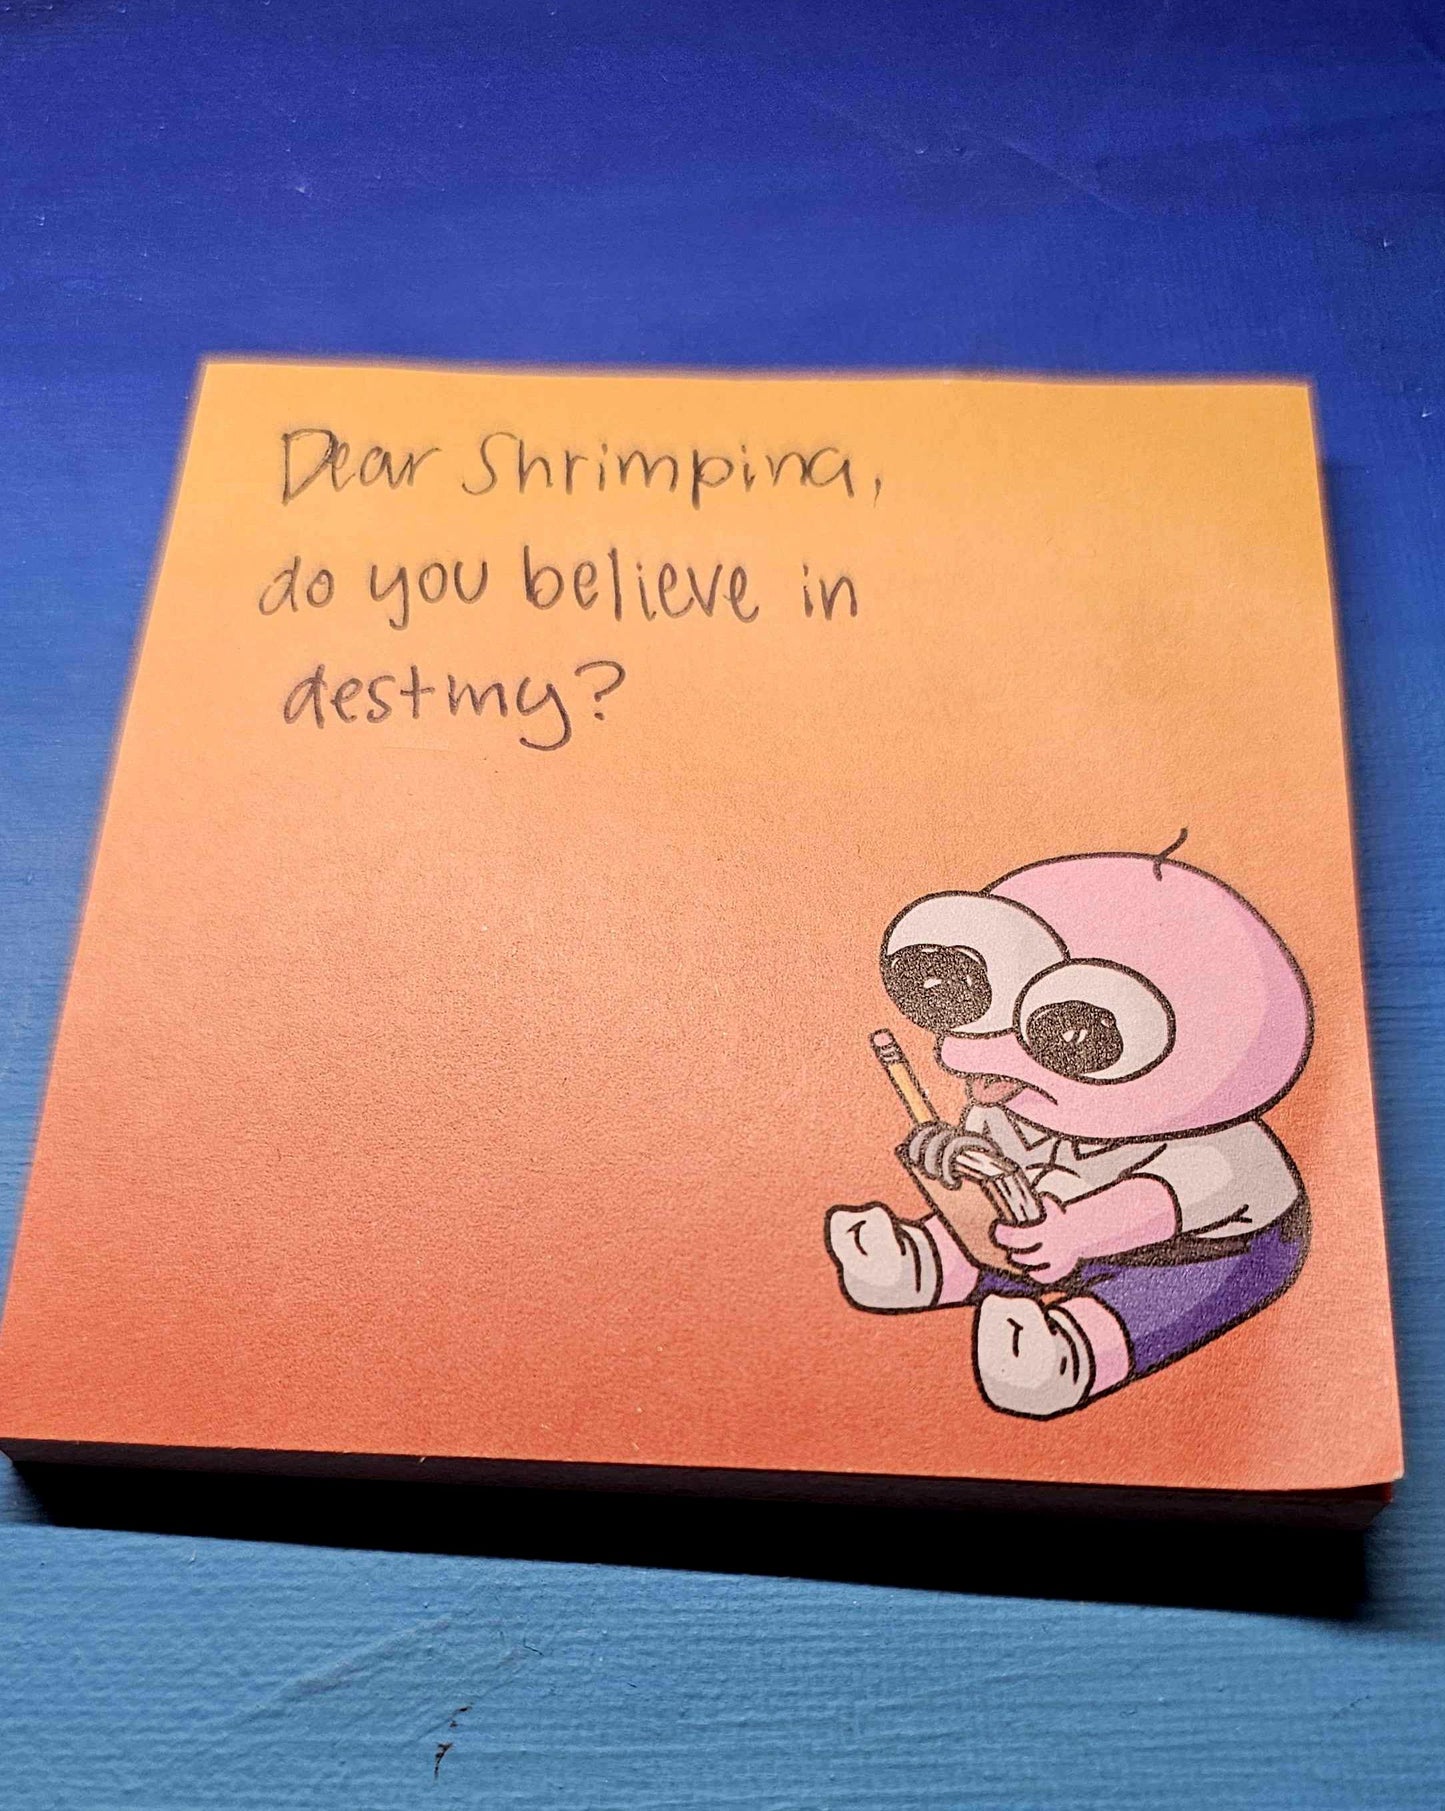 Dear Shrimpina,
do you believe in
destiny?